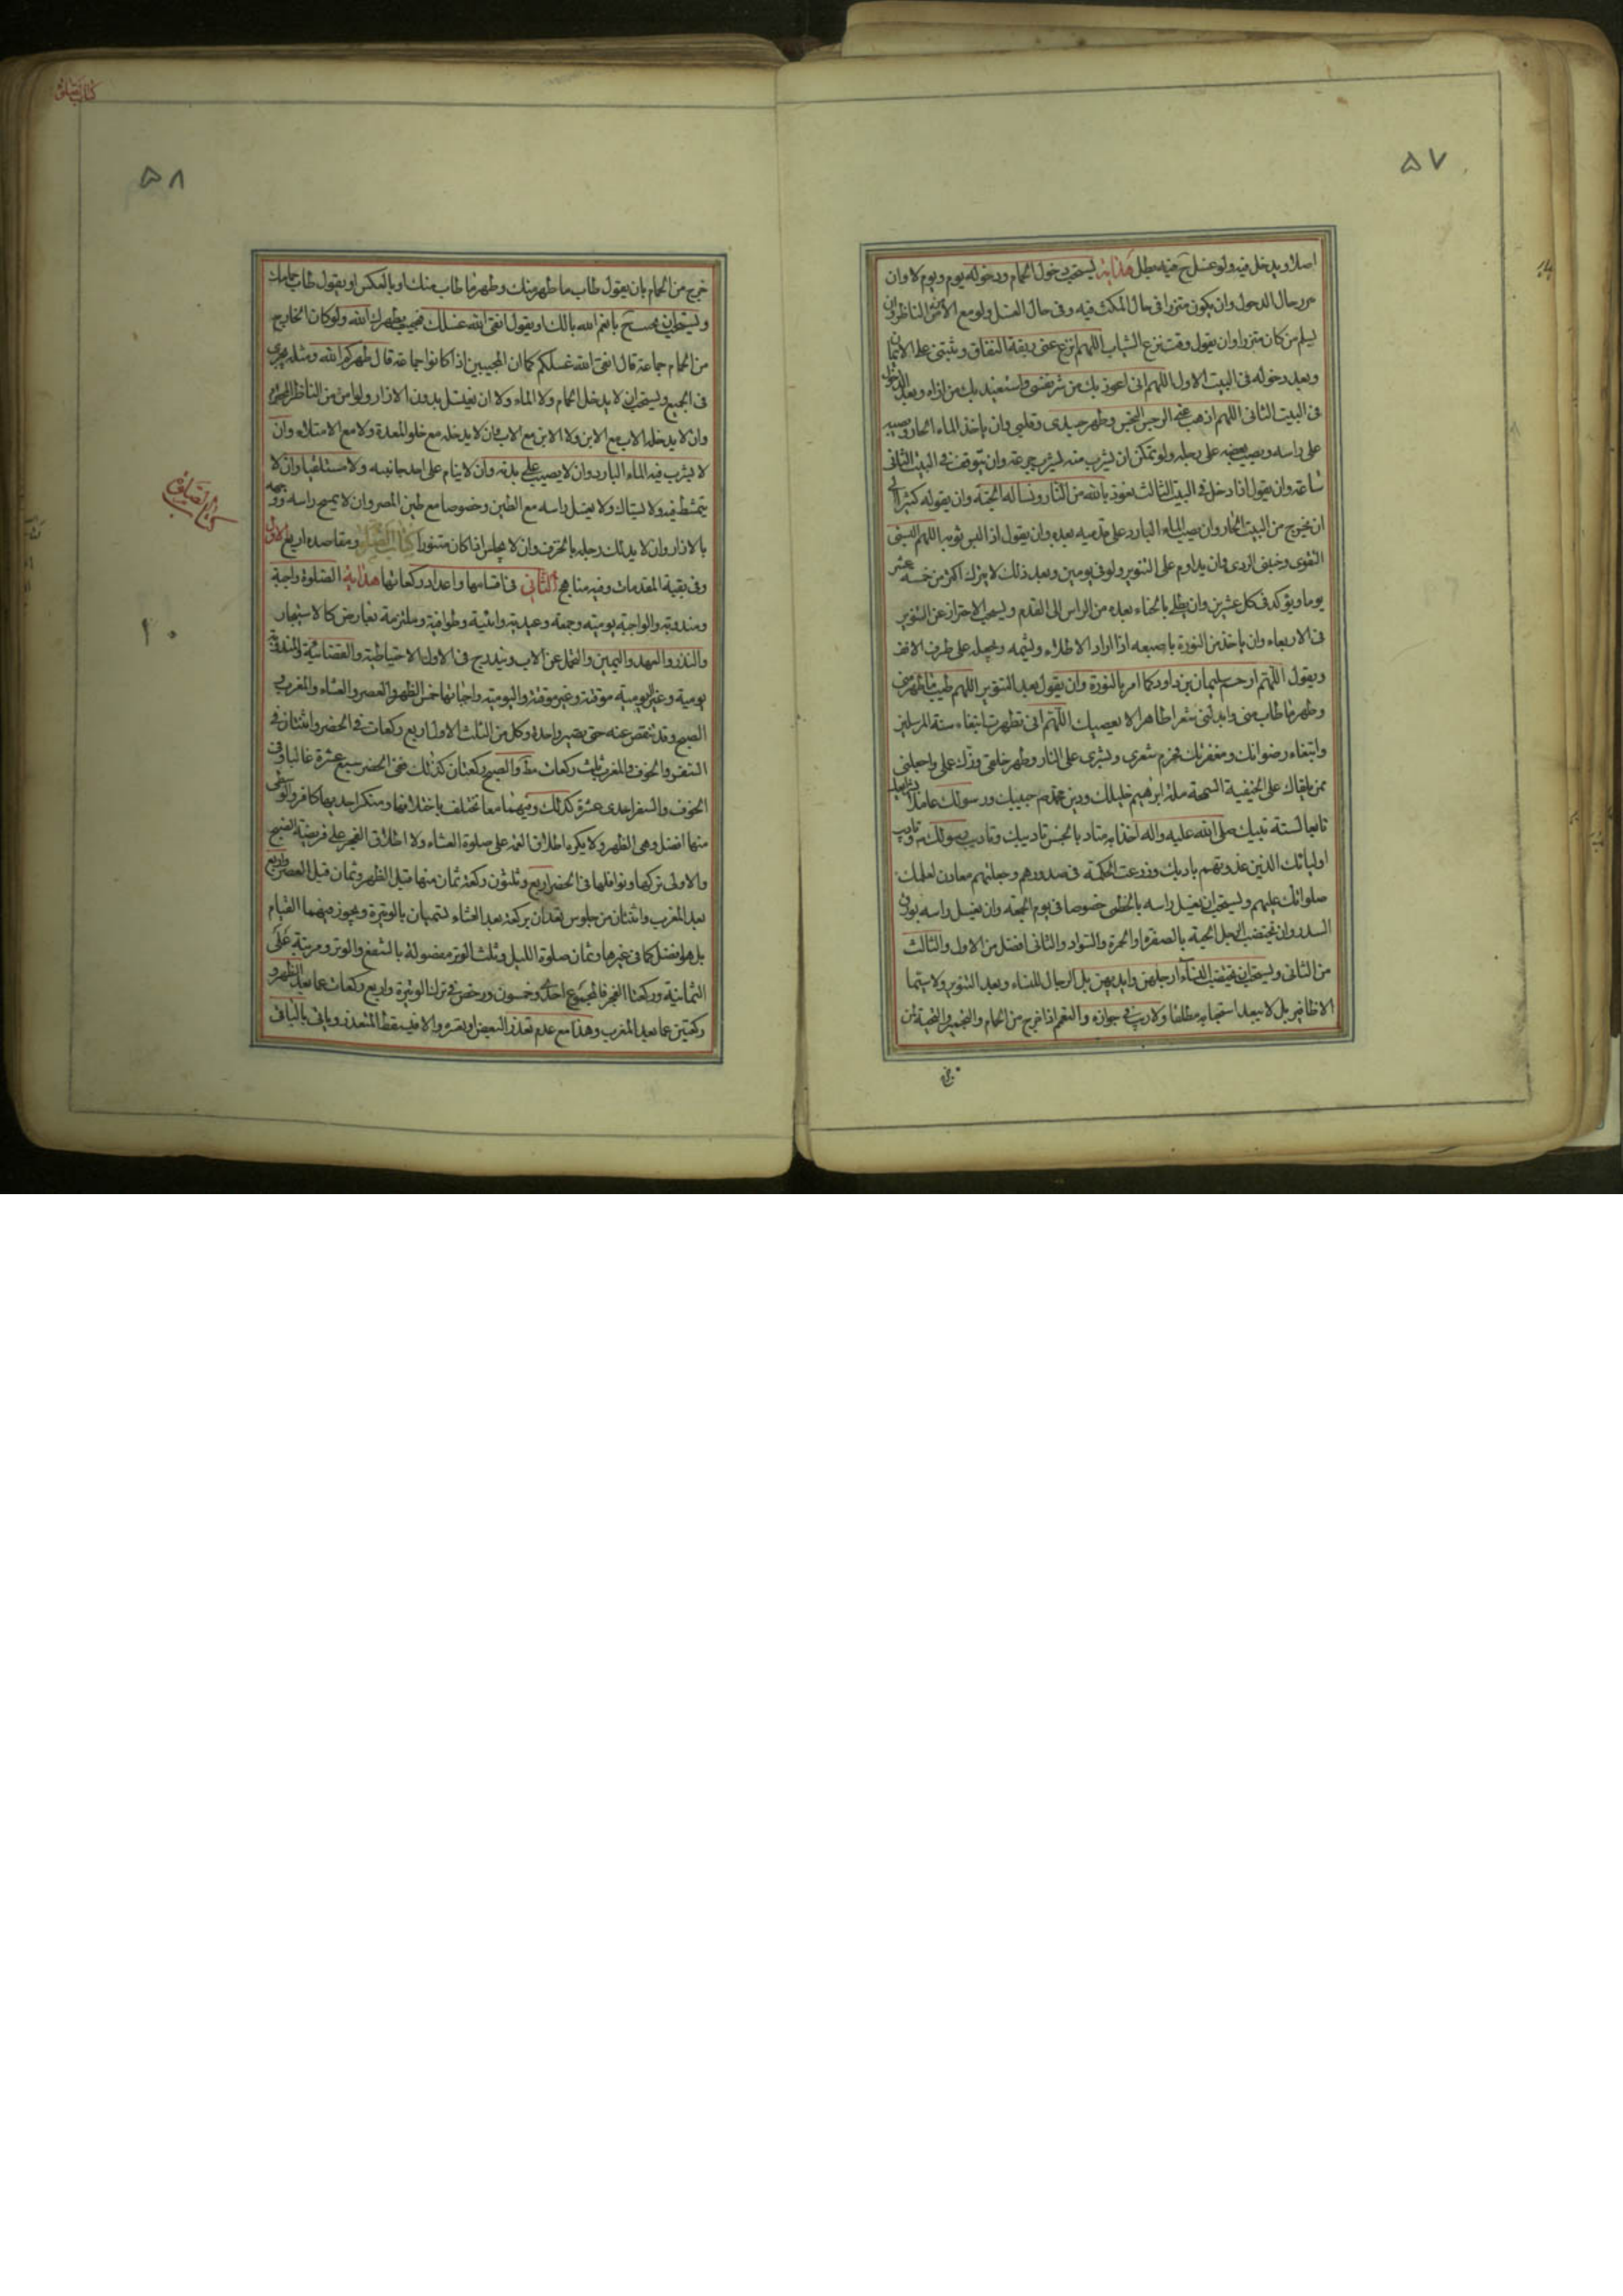 ۵۷
اصلا ويدخل فيه ولو غسل ح فيه بطل هداية يستحب دخول الحمام ودخوله يوم ويوم لا وان
حال الدخول وان يكون متزرا في حال المكث فيه وفي حال الغسل ولو مع الامن الناظر وان
يسلم من كان متزرا وان يقول وقت نزع الثياب اللهم انزع عني ربقة النفاق وثبتني على الايمان
وبعد دخوله في البيت الاول اللهم اني اعوذ بك من شر نفسي واستعيذ بك من اذاه وبعد الدخول
في البيت الثاني اللهم اذهب عني الرجس النجس وطهر جسدي وقلبي وان ياخذ الماء الحار ويصبه
على راسه ويصب بعضه على رجليه ولو تمكن ان يشرب منه ليشرب جرعة وان يتوقف في البيت الثاني
ساعة وان يقول اذا دخل في البيت الثالث نعوذ بالله من النار ونساله الجنة وان يقوله كثيرا الى
ان يخرج من البيت الحار وان يصب الماء البارد على قدميه بعده وان يقول اذا لبس ثوبه اللهم البسني
التقوى وجنبني الردى وان يداوم على التنوير ولو في يومين وبعد ذلك لا يترك اكثر من خمسة عشر
يوما ويؤكد في كل عشرين وان يطلي بالحناء بعده من الراس الى القدم ويستحب الاحتراز عن التنوير
في الاربعاء وان ياخذ من النورة باصبعه اذا اراد الاطلاء ويشمه ويجعله على طرف الانف
ويقول اللهم ارحم سليمان بن داود كما امر بالنورة وان يقول بعد التنوير اللهم طيب ما طهر مني
وطهر ما طاب مني وابدلني شعرا طاهرا لا يعصيك اللهم اني تطهرت ابتغاء سنة المرسلين
وابتغاء رضوانك ومغفرتك فحرم شعري وبشري على النار وطهر خلقي وزك عملي واجعلني
ممن يلقاك على الحنيفية السمحة ملة ابرهيم خليلك ودين محمد حبيبك ورسولك عاملا بشرايعك
تابعا لسنة نبيك صلى الله عليه واله اخذا به متادبا بحسن تاديبك وتاديب رسولك وتاديب
اوليائك الذين غذوتهم بادبك وزرعت الحكمة في صدورهم وجعلتهم معادن لعلمك
صلواتك عليهم ويستحب ان يغسل راسه بالخطمي خصوصا في يوم الجمعة وان يغسل راسه بورق
السدر وان يختضب الرجل لحيته بالصفرة والحمرة والسواد والثاني افضل من الاول والثالث
من الثاني ويستحب ان يختضب النساء ارجلهن وايديهن بل الرجال للنساء وبعد التنوير ولا سيما
الاظافير بل لا يبعد استحبابه مطلقا ولا ريب في جوازه والتعمم اذا خرج من الحمام والتحية لمن
كتاب الصلوة
۵۸
خرج من الحمام بان يقول طاب ما طهر منك وطهر ما طاب منك او بالعكس او يقول طاب حمامك
ويستحب ان يجيب ح بانعم الله بالك او يقول انقى الله غسلك فيجيب طهرك الله ولو كان الخارج
من الحمام جماعة قال انقى الله غسلكم كما ان المجيبين اذا كانوا جماعة قال طهركم الله ومثله يجري
في الجميع ويستحب ان لا يدخل الحمام ولا الماء ولا ان يغتسل بدون الازار ولو امن من الناظر المحترم
وان لا يدخله الاب مع الابن ولا الابن مع الاب وان لا يدخله مع خلو المعدة ولا مع الامتلاء وان
لا يشرب فيه الماء البارد وان لا يصيب على بدنه وان لا ينام على احد جانبيه ولا مستلقيا وان لا
يتمشط فيه ولا يستاك ولا يغسل راسه مع الطين وخصوصا مع طين المصر وان لا يمسح راسه ووجهه
بالازار وان لا يدلك رجله بالخزف وان لا يجلس اذا كان متنورا كتاب الصلوة ومقاصده اربع الاول
وفي بقية المقدمات وفيه مناهج الثاني في اقسامها واعداد ركعاتها هداية الصلوة واجبة
ومندوبة والواجبة يومية وجمعة وعيدية وائتية وطوافية وملتزمة بعارض كالاستيجار
والنذر والعهد واليمين والتحمل عن الاب ويندرج في الاول الاحتياطية والقضائية والمندوبة
يومية وغير اليومية موقتة وغير موقتة واليومية واجباتها خمس الظهر والعصر والعشاء والمغرب
الصبح وقد تنقص عنه حتى يصير واحدة وكل من الثلث الاول اربع ركعات في الحضر واثنتان في
السفر والخوف والمغرب ثلث ركعات مط والصبح ركعتان كذلك ففي الحضر سبع عشرة غالبا وفي
الخوف والسفر احدى عشرة كذلك وفيهما معا تختلف باختلافها ومنكر احديها كافر والوسطى
منها افضل وهي الظهر ولا يكره اطلاق العتمة على صلوة العشاء ولا اطلاق الفجر على فريضة الصبح
والاولى تركها ونوافلها في الحضر اربع وثلثون ركعة ثمان منها قبل الظهر وثمان قبل العصر واربع
بعد المغرب واثنتان من جلوس تعدان بركعة بعد العشاء تسميان بالوتيرة ويجوز فيهما القيام
بل هو افضل كما في غيرها وثمان صلوة الليل وثلث الوتر مفصولة بالشفع والوتر ومرتبة على
الثمانية وركعتا الفجر فالمجموع احدى وخمسون ورخص في ترك الوتيرة واربع ركعات عما بعد الظهر و
ركعتين عما بعد المغرب وهذا مع عدم تعذر البعض او تعسره والا فيسقط المتعذر وياتي بالباقي
كتاب الصلوة